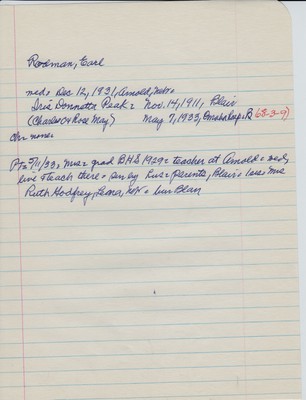 Rodman, Earl
med = Dec 12, 1931, Arnold, Nebr =
Iris Donnetta Peak = Nov. 14, 1911, Blair
(Charles or Rose May) May 7, 1933, Omaha Hosp = R 68-3-9)
chr none =
Pt = 5/11/33, Mrs = grad BHS 1929 = teacher at Arnold = med,
live & teach there = sur by hus = parents, Blair = 1 sis Mrs
Ruth Godfrey, Leona, = bur Blair